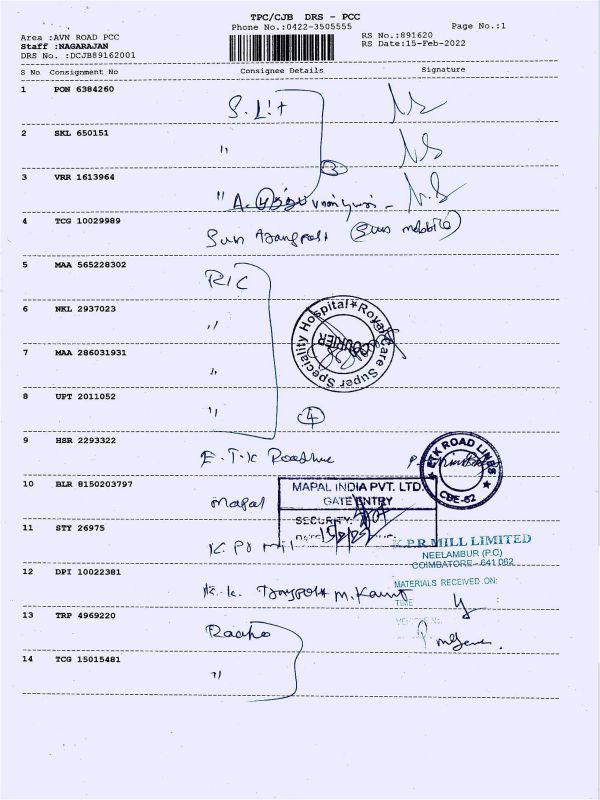 TPC/CJB DRS - PCC
Phone No.:0422-3505555
Page No.:1
Area :AVN ROAD PCC
Staff :NAGARAJAN
DRS No. :DCJB89162001
RS No.:891620
RS Date:15-Feb-2022
S No Consignment No Consignee Details Signature
1 PON 6384260 S. Lit
2 SKL 650151 "
3
3 VRR 1613964 "
4 TCG 10029989 Sun
5 MAA 565228302 R/C
6 NKL 2937023 "
Royal Care Super Speciality Hospital
COURIER
7 MAA 286031931 "
8 UPT 2011052 "
4
9 HSR 2293322 E.T.K
ETK ROAD LINES
CBE-62
10 BLR 8150203797 mapal
MAPAL INDIA PVT. LTD.
GATE ENTRY
SECURITY
11 STY 26975
K.P.R MILL LIMITED
NEELAMBUR (P.O)
COIMBATORE - 641 062
12 DPI 10022381
MATERIALS RECEIVED ON:
TIME
13 TRP 4969220
14 TCG 15015481 "